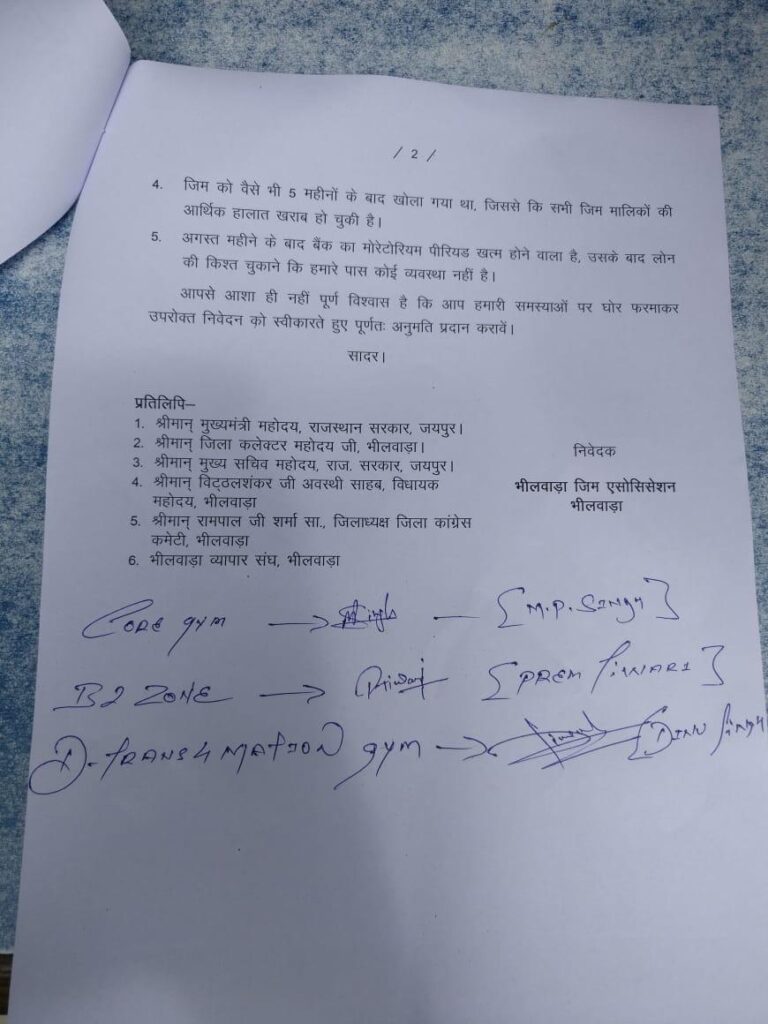 / 2 /
4. जिम को वैसे भी 5 महीनों के बाद खोला गया था, जिससे कि सभी जिम मालिकों की
आर्थिक हालात खराब हो चुकी है।
5. अगस्त महीने के बाद बैंक का मोरेटोरियम पीरियड खत्म होने वाला है, उसके बाद लोन
की किश्त चुकाने कि हमारे पास कोई व्यवस्था नहीं है।
आपसे आशा ही नहीं पूर्ण विश्वास है कि आप हमारी समस्याओं पर घोर फरमाकर
उपरोक्त निवेदन को स्वीकारते हुए पूर्णतः अनुमति प्रदान करावें।
सादर।
प्रतिलिपि–
1. श्रीमान् मुख्यमंत्री महोदय, राजस्थान सरकार, जयपुर।
2. श्रीमान् जिला कलेक्टर महोदय जी, भीलवाड़ा।
3. श्रीमान् मुख्य सचिव महोदय, राज. सरकार, जयपुर।
4. श्रीमान् विट्ठलशंकर जी अवस्थी साहब, विधायक
महोदय, भीलवाड़ा
5. श्रीमान् रामपाल जी शर्मा सा., जिलाध्यक्ष जिला कांग्रेस
कमेटी, भीलवाड़ा
6. भीलवाड़ा व्यापार संघ, भीलवाड़ा
निवेदक
भीलवाड़ा जिम एसोसिसेशन
भीलवाड़ा
CORE GYM → — [M.P. SINGH]
B2 ZONE → [PREM TIWARI]
D-TRANS4MATION GYM → SINGH